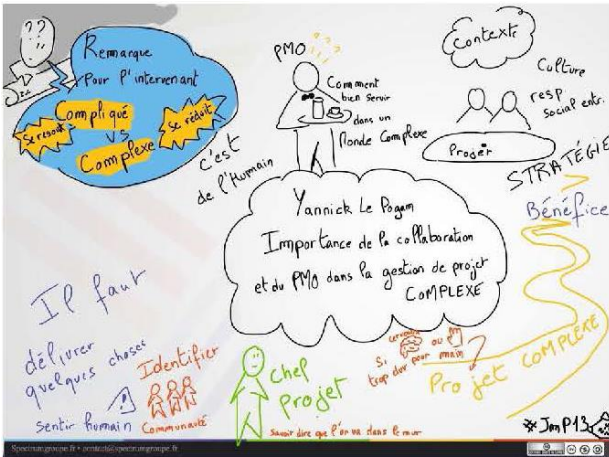 ??
Remarque
Pour l'intervenant
Compliqué
vs
Complexe
Se résout
Se réduit
c'est
de l'Humain
PMO
Comment
bien servir
dans un
Monde Complexe
Contexte
Culture
resp
Social entr.
Projet
STRATÉGIE
Bénéfice
Yannick Le Pogam
Importance de la collaboration
et du PMO dans la gestion de projet
COMPLEXE
Il faut
délivrer
quelques choses
sentir humain
Identifier
Communauté
Chef
Projet
Savoir dire que l'on va dans le mur
Si
cerveau
ou PM
trop dur pour main
?
Projet COMPLEXE
#JMP13
Spectrumgroupe.fr • contact@spectrumgroupe.fr